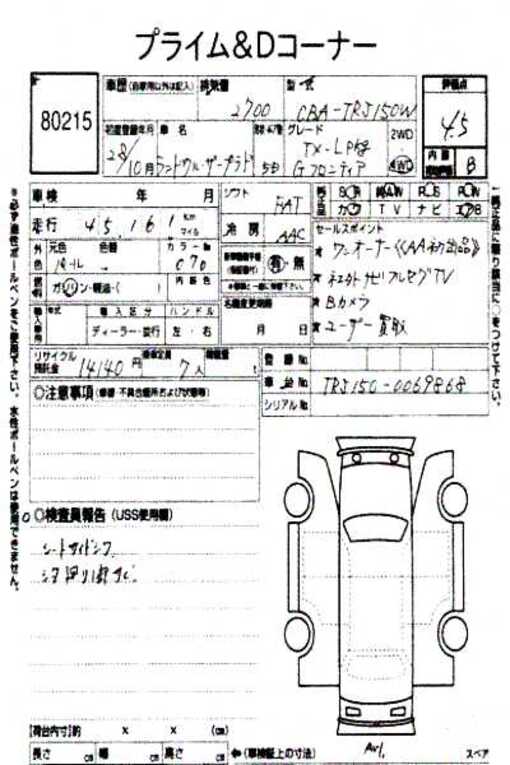 プライム&Dコーナー
80215
車歴 (自家用以外は記入) 排気量 2700
型式 CBA-TRJ150W
評価点 4.5
初度登録年月 28/10月
車名 ランドクルーザープラド
ドア 5
グレード TX-LPKG
Gフロンティア
2WD 4WD
内装 B
車検 年 月
シフト FAT
走行 45,161 Km マイル
冷房 AAC
外色 元色 パール 色替
カラーNo 070
内部色
燃料 ガソリン・軽油・( )
有・無
輸入車 年式 輸入区分 ハンドル
ディーラー・並行 左・右
名義変更期限
月 日
純正品 S・R A・W P・S P・W
カワ TV ナビ エアB
セールスポイント
ワンオーナー《AA初出品》
ナビフルセグTV
Bカメラ
ユーザー買取
リサイクル預託金 14140円 乗車定員 7人 積載量 t
登録No
車台No TRJ150-0069868
シリアルNo
○注意事項 (車検・不具合箇所および状態等)
○検査員報告 (USS使用欄)
シートサイドシワ
シタ廻り サビ
[荷台内寸]約 × × (cm)
長さ cm 幅 cm 高さ cm ←(車検証上の寸法)
スペア
※必ず油性ボールペンをご使用下さい。水性ボールペンは使用できません。
純正品に限り該当に○をつけて下さい。